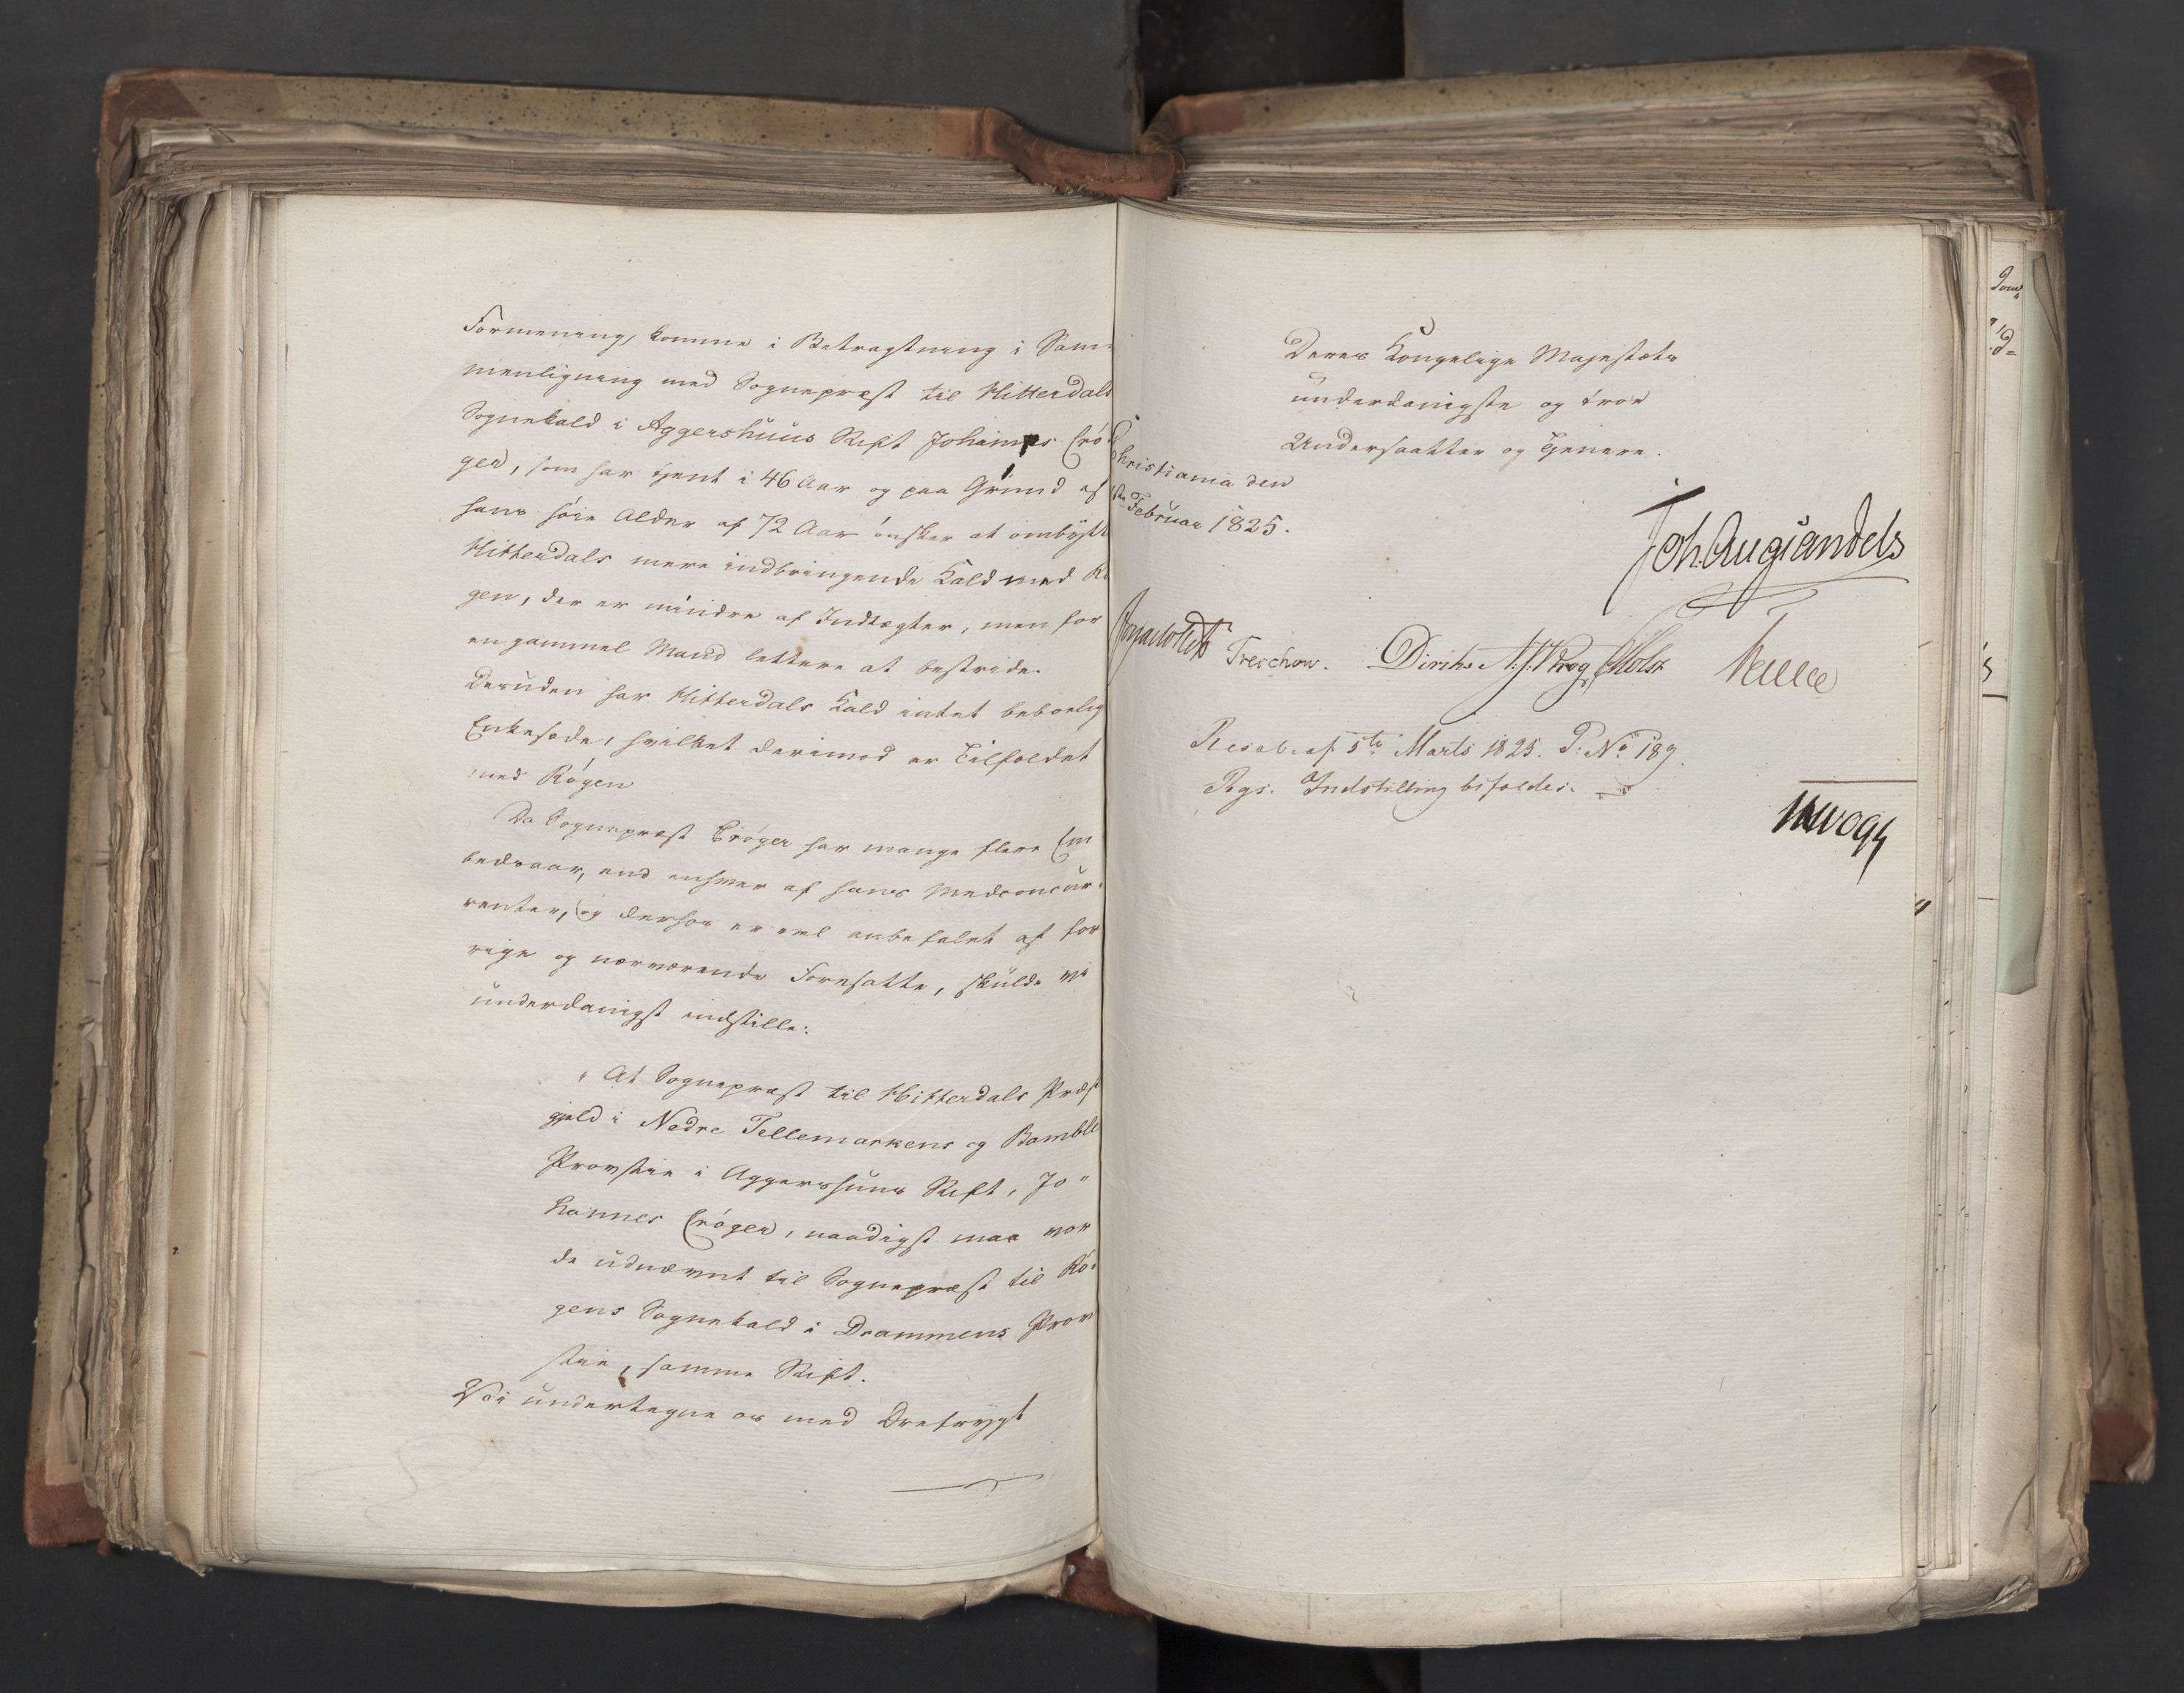 Formening, komme i Betragtning i Sam-
menligning med Sognepræst til Hitterdals
Sognekald i Aggershuus Stift Johannes Crö-
ger, som har tjent i 46 Aar og paa Grund af
hans høie Alder af 72 Aar ønsker at ombytte
Hitterdals mere indbringende Kald med Rø
gen, der er mindre af Indtægter, men for
en gammel Mand lettere at bestride.
Desuden har Hitterdals Kald intet beboelig
Enkesæde, hvilket derimod er Tilfældet
med Røgen
Da Sognepræst Crøger har mange flere Em
bedsaar, end enhver af hans Medconcur-
renter, og derhos er vel anbefalet af for
rige og nærværende Foresatte, skulde vi
underdanigst indstille:
" At Sognepræst til Hitterdals Præst
gjeld i Nedre Tellemarkens og Bamble
Provstie i Aggershuus Stift, Jo-
hannes Crøger, naadigst maa vor
de udnævnt til Sognepræst til Rö-
gens Sognekald i Drammens Prov
stie, samme Stift.
Vi undertegne os med Ærefrygt
Deres Kongelige Majestæts
underdanigste og troe
Undersaatter og Tjenere.
Christiania den
Februar 1825.
Joh. Aug. Sandels
Treschow. Diriks N. J. Krog P. Motzfeldt
Resol. af 5te Marts 1825. P. No 189.
Rgs. Indstilling bifaldes.